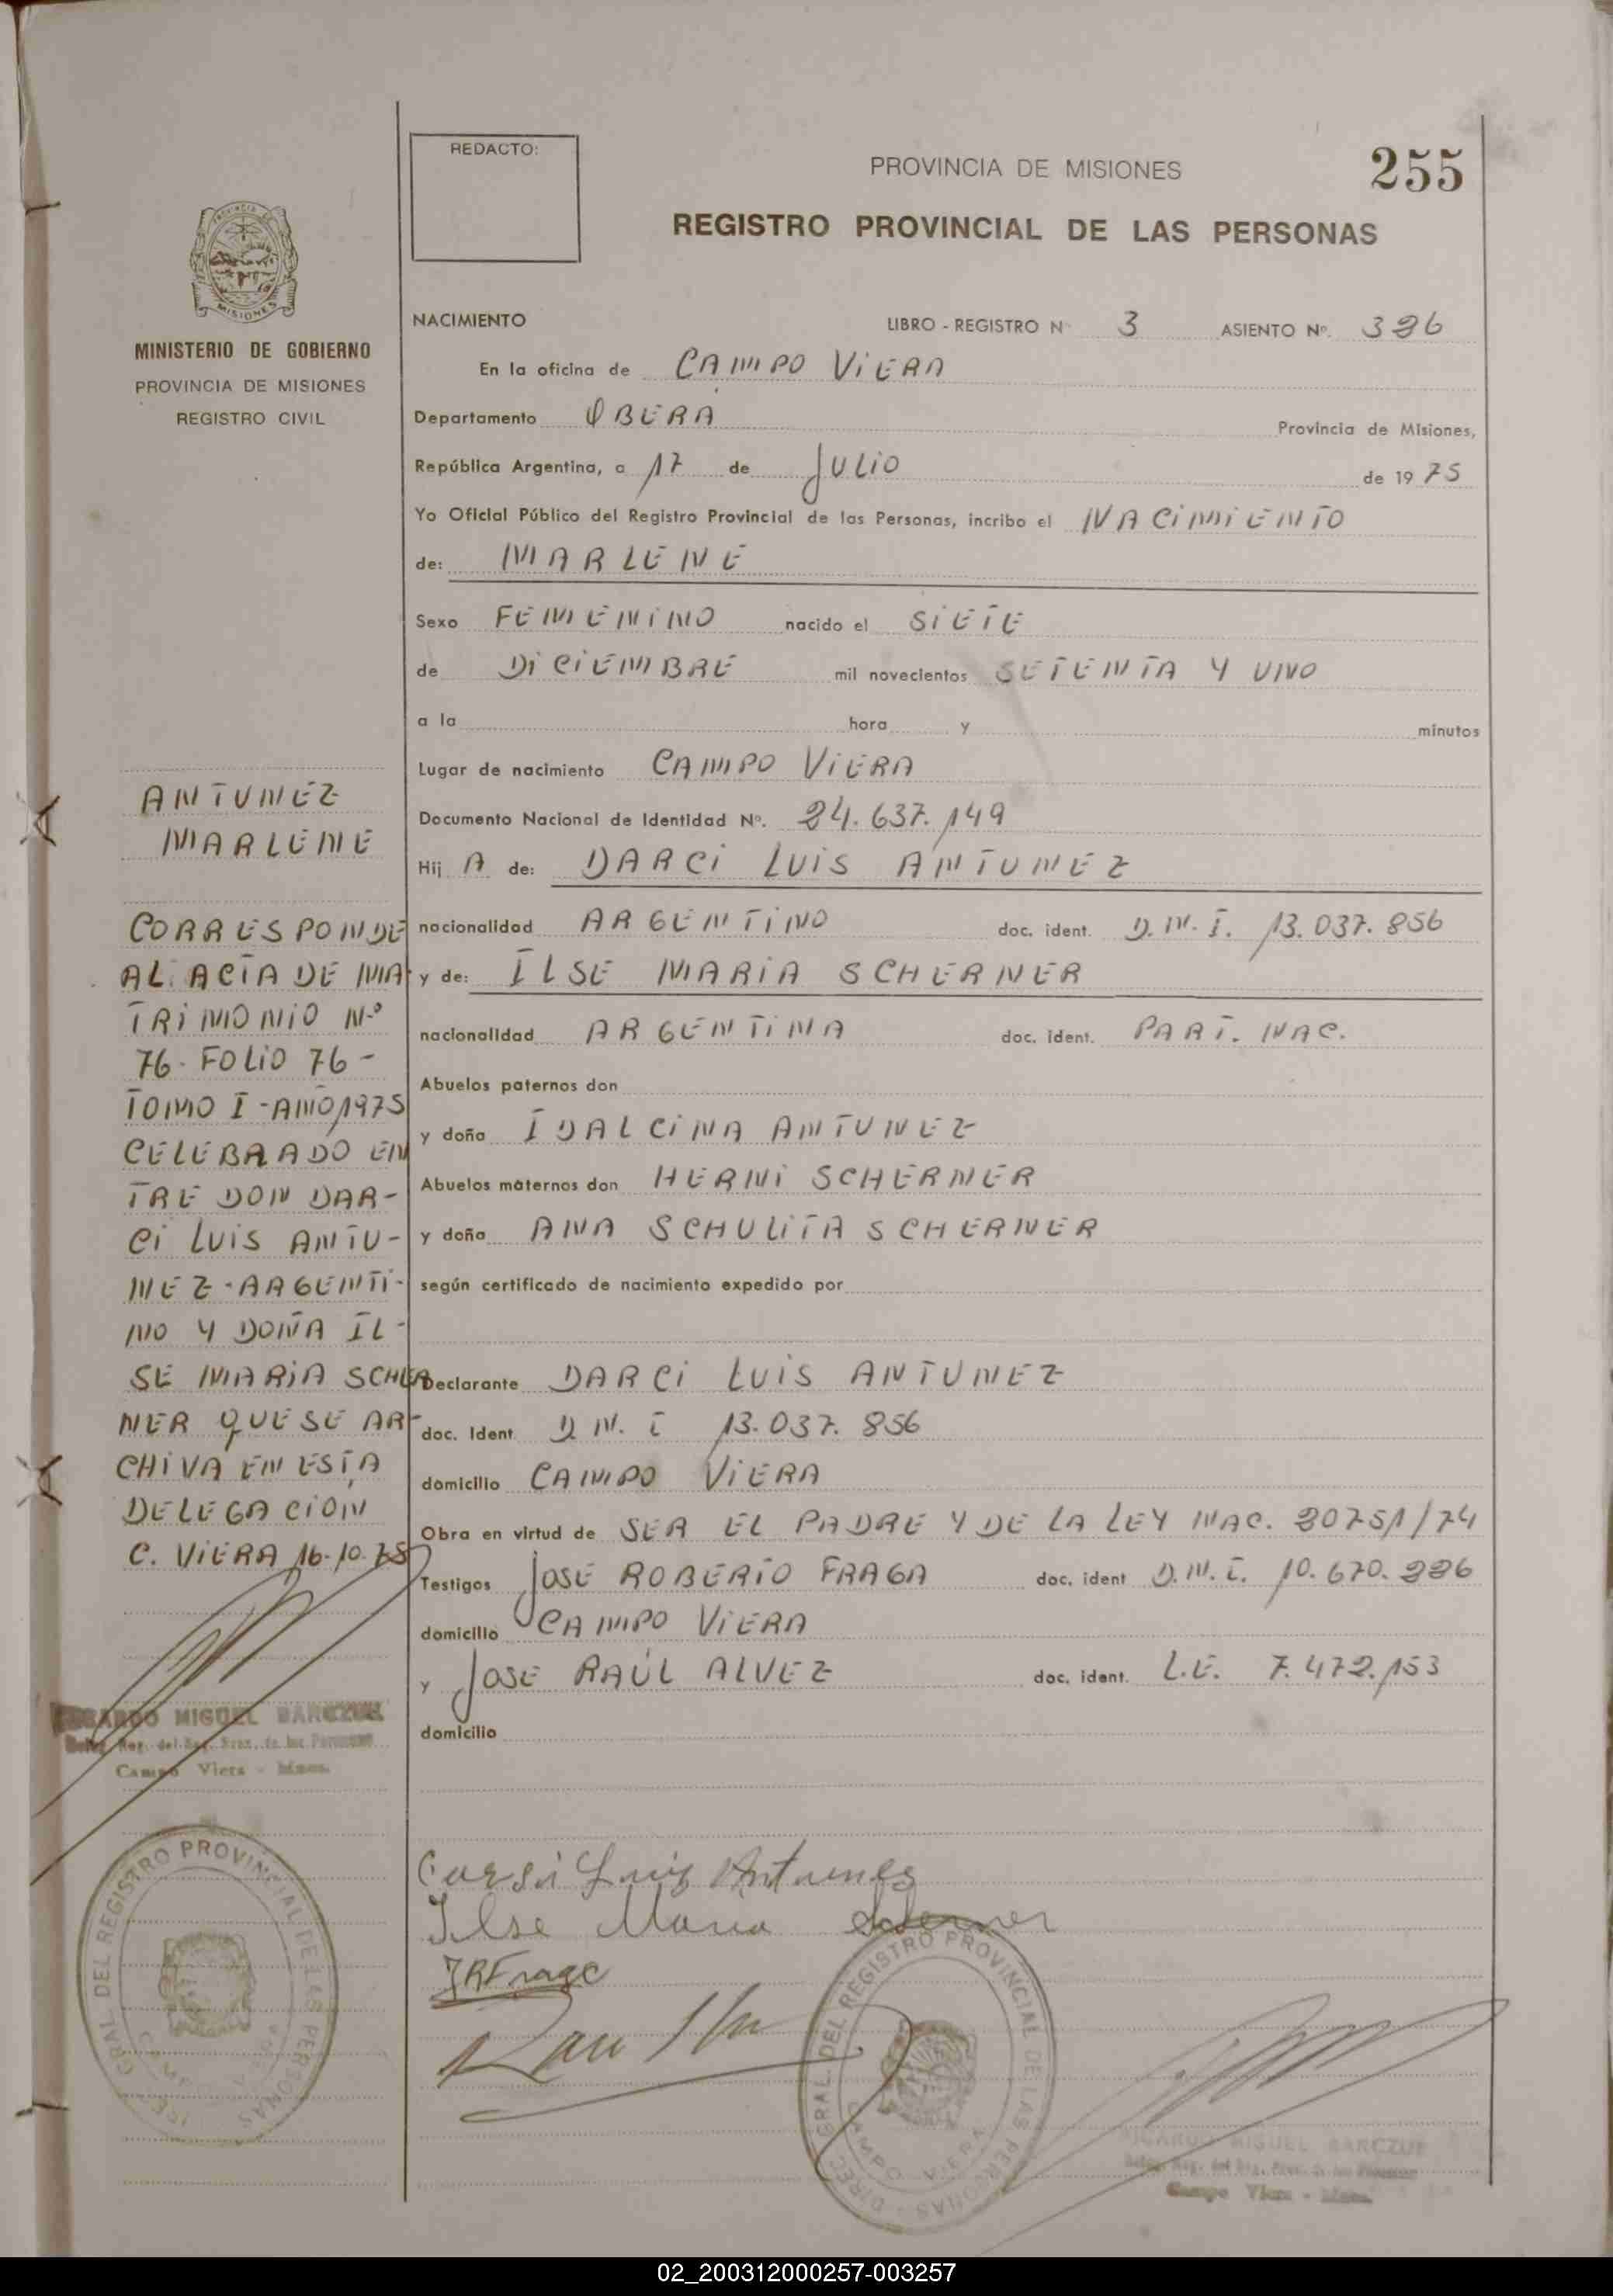 REDACTO:
PROVINCIA DE MISIONES
255
REGISTRO PROVINCIAL DE LAS PERSONAS
MISIONES
MINISTERIO DE GOBIERNO
PROVINCIA DE MISIONES
REGISTRO CIVIL
NACIMIENTO LIBRO - REGISTRO Nº 3 ASIENTO Nº.
En la oficina de CAMPO VIERA
Departamento OBERA Provincia de Misiones,
República Argentina, a 17 de JULIO de 1975
Yo Oficial Público del Registro Provincial de las Personas, incribo el NACIMIENTO
de: MARLENE
Sexo FEMENINO nacido el SIETE
de DICIEMBRE mil novecientos SETENTA Y UNO
a la hora y minutos
Lugar de nacimiento CAMPO VIERA
Documento Nacional de Identidad Nº. 24.637.149
Hij A de: DARCI LUIS ANTUNEZ
nacionalidad ARGENTINO doc. ident. D.N.I. 13.037.856
y de: ILSE MARIA SCHERNER
nacionalidad ARGENTINA doc. ident. PART. NAC.
Abuelos paternos don
y doña IDALCINA ANTUNEZ
Abuelos maternos don HERNI SCHERNER
y doña ANA SCHULITA SCHERNER
según certificado de nacimiento expedido por
Declarante DARCI LUIS ANTUNEZ
doc. Ident D.N.I 13.037.856
domicilio CAMPO VIERA
Obra en virtud de SER EL PADRE Y DE LA LEY NAC. 20751/74
Testigos JOSE ROBERTO FRAGA doc. ident D.N.I. 10.670.226
domicilio CAMPO VIERA
y JOSE RAÚL ALVEZ doc. ident. L.E. 7.472.153
domicilio
ANTUNEZ
MARLENE
CORRESPONDE
AL ACTA DE MA-
TRIMONIO Nº
76 - FOLIO 76 -
TOMO I - AÑO 1975
CELEBRADO EN
TRE DON DAR-
CI LUIS ANTU-
NEZ - ARGENTI-
NO Y DOÑA IL-
SE MARIA SCHER
NER QUE SE AR-
CHIVA EN ESTA
DELEGACION
C. VIERA 16-10-75
MIGUEL BARCZUK
Campo Viera - Mnes.
GRAL DEL REGISTRO PROVINCIAL DE LAS PERSONAS
Luis Antunes
Ilse Maria Scherner
JRFraga
DIREC. GRAL. DEL REGISTRO PROVINCIAL DE LAS PERSONAS
CAMPO VIERA
MIGUEL BARCZUK
Campo Viera - Mnes.
02_200312000257-003257